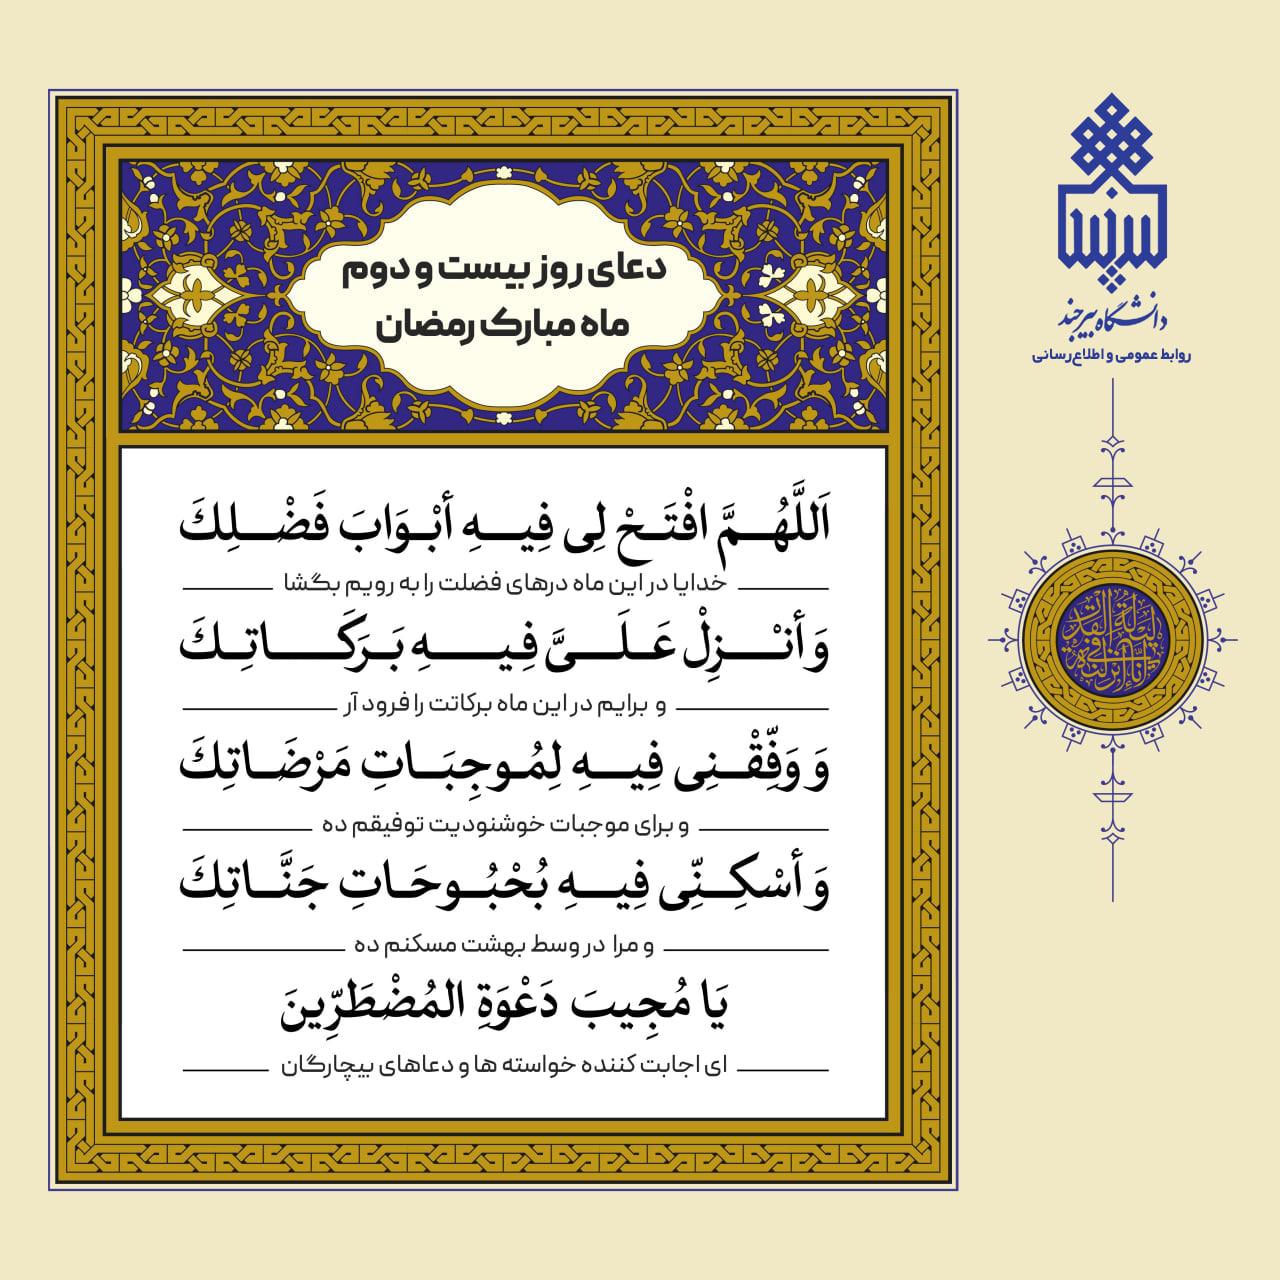 دعای روز بیست و دوم
ماه مبارک رمضان
اَللَّهُمَّ افْتَحْ لِی فِیهِ أبْوَابَ فَضْلِكَ
خدایا در این ماه درهای فضلت را به رویم بگشا
وَ أنْزِلْ عَلَیَّ فِیهِ بَرَكَاتِكَ
و برایم در این ماه برکاتت را فرود آر
وَ وَفِّقْنِی فِیهِ لِمُوجِبَاتِ مَرْضَاتِكَ
و برای موجبات خوشنودیت توفیقم ده
وَ أسْكِنِّی فِیهِ بُحْبُوحَاتِ جَنَّاتِكَ
و مرا در وسط بهشت مسکنم ده
یَا مُجِیبَ دَعْوَةِ المُضْطَرِّینَ
ای اجابت کننده خواسته ها و دعاهای بیچارگان
دانشگاه بیرجند
روابط عمومی و اطلاع‌رسانی